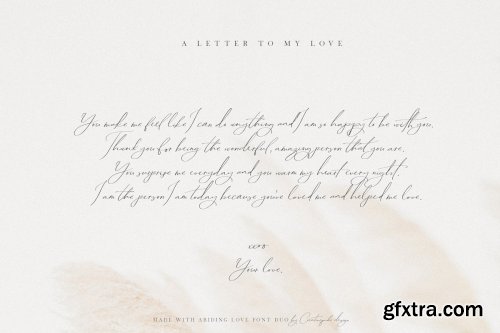 A LETTER TO MY LOVE
You make me feel like I can do anything and I am so happy to be with you.
Thank you for being the wonderful, amazing person that you are.
You surprise me everyday and you warm my heart every night.
I am the person I am today because you've loved me and helped me love.
xoxo
Your love,
MADE WITH ABIDING LOVE FONT DUO by
gfxtra.com